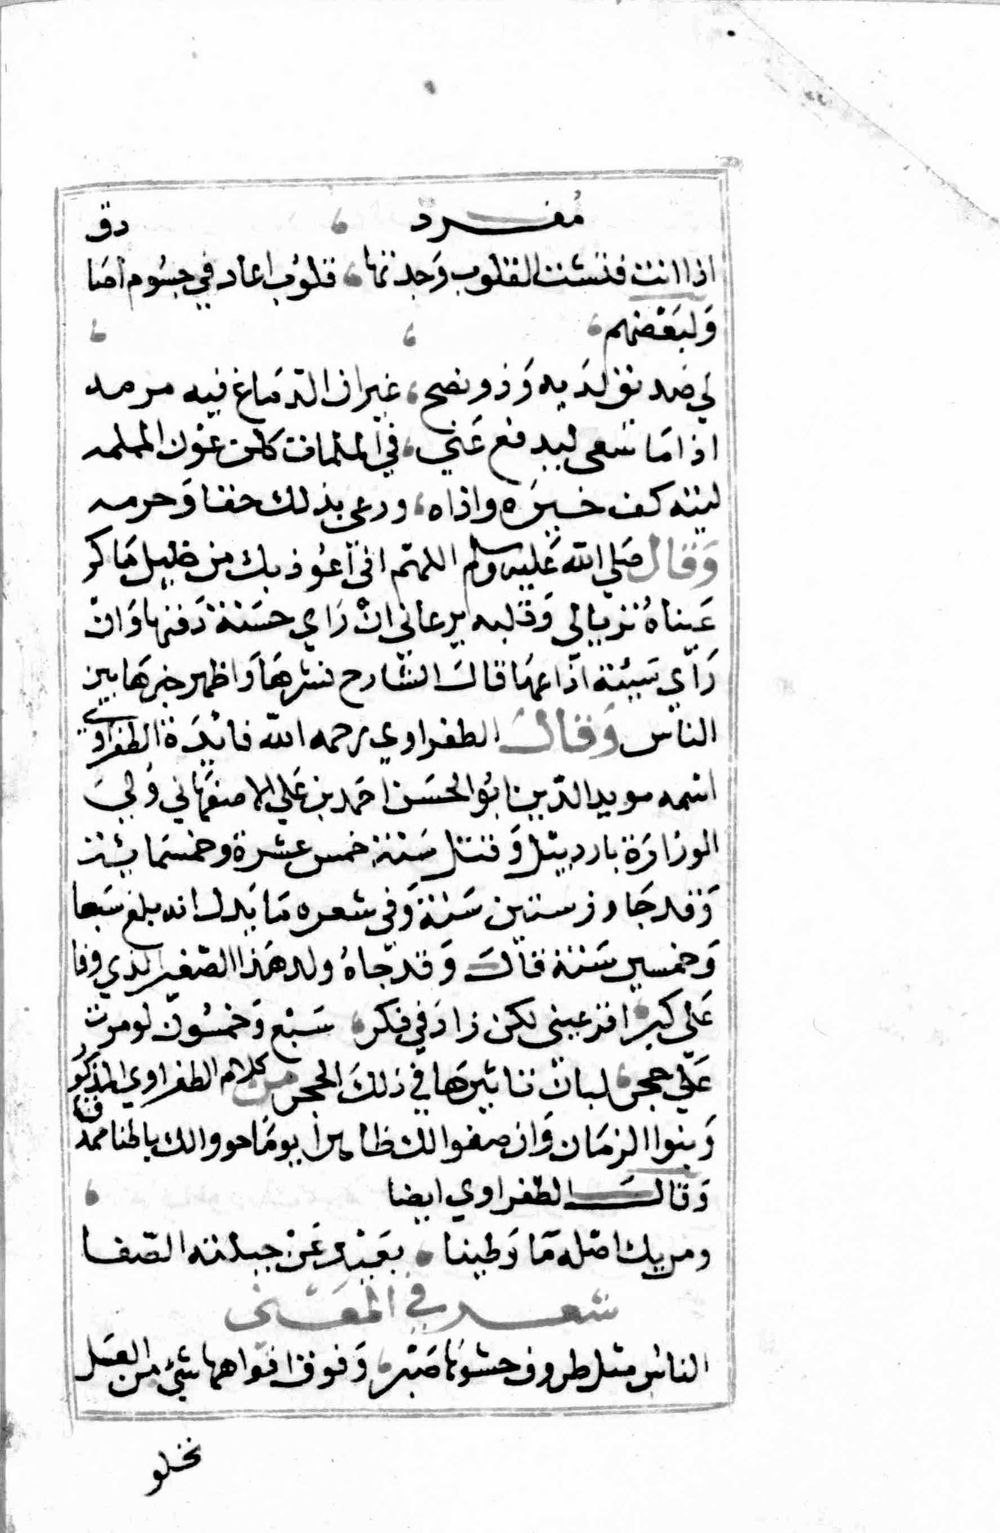 مفرد
اذا انت فتشت القلوب وجدتها قلوب اعاد في جسوم اصا
دق
ولبعضهم
لي صديق لديه ود ونصح غير ان الدماغ فيه مرمه
اذا ما سعى ليدفع عني في الملمات كان عون الملمه
ليته كف خيره واذاه ورعى بذلك حقا وحرمه
وقال صلي الله عليه وسلم اللهم اني اعوذ بك من خليل ماكر
عيناه تريالي وقلبه يرعاني ان راي حسنة دفنها وان
راي سيئة اذاعها قال الشارح نشرها واظهر خبرها بين
الناس وقال الطغراوي رحمه الله فائدة الطغراوي
اسمه مويد الدين ابو الحسن احمد بن علي الاصفهاني ولي
الوزارة باردبيل وقتل سنة خمس عشرة وخمسمايئة
وقد جاوز ستين سنة وفي شعره ما يدل انه بلغ سبعا
وخمسين سنة قال وقد جاه ولد هذا الصغير الذي وفا
على كبر اقر عيني لكن زاد في فكر سبع وخمسون لو مرت
على حجر لبان تاثيرها في ذلك الحجر من كلام الطغراوي المذكور
وبنوا الزمان وان صفوا لك ظاهرا يوما حووا لك باطنا مماذقا
وقال الطغراوي ايضا
ومن يك اصله ما وطينا بعيد عن جبلته الصفا
شعر في المعنى
الناس مثل ظروف حشوها صبر وفوق افواهها شئ من العسل
نخلو